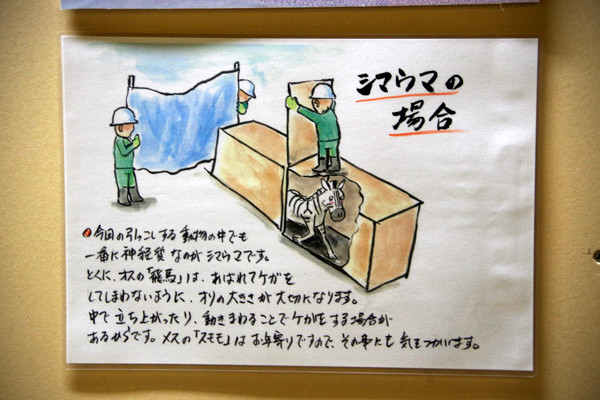 シマウマの
場合
今回の引っこしする動物の中でも
一番に神経質なのがシマウマです。
とくに、オスの「飛馬」は、あばれてケガを
してしまわないように、オリの大きさが大切になります。
中で立ち上がったり、動きまわることでケガをする場合が
あるからです。メスの「スモモ」はお年寄りですので、その事にも気をつかいます。